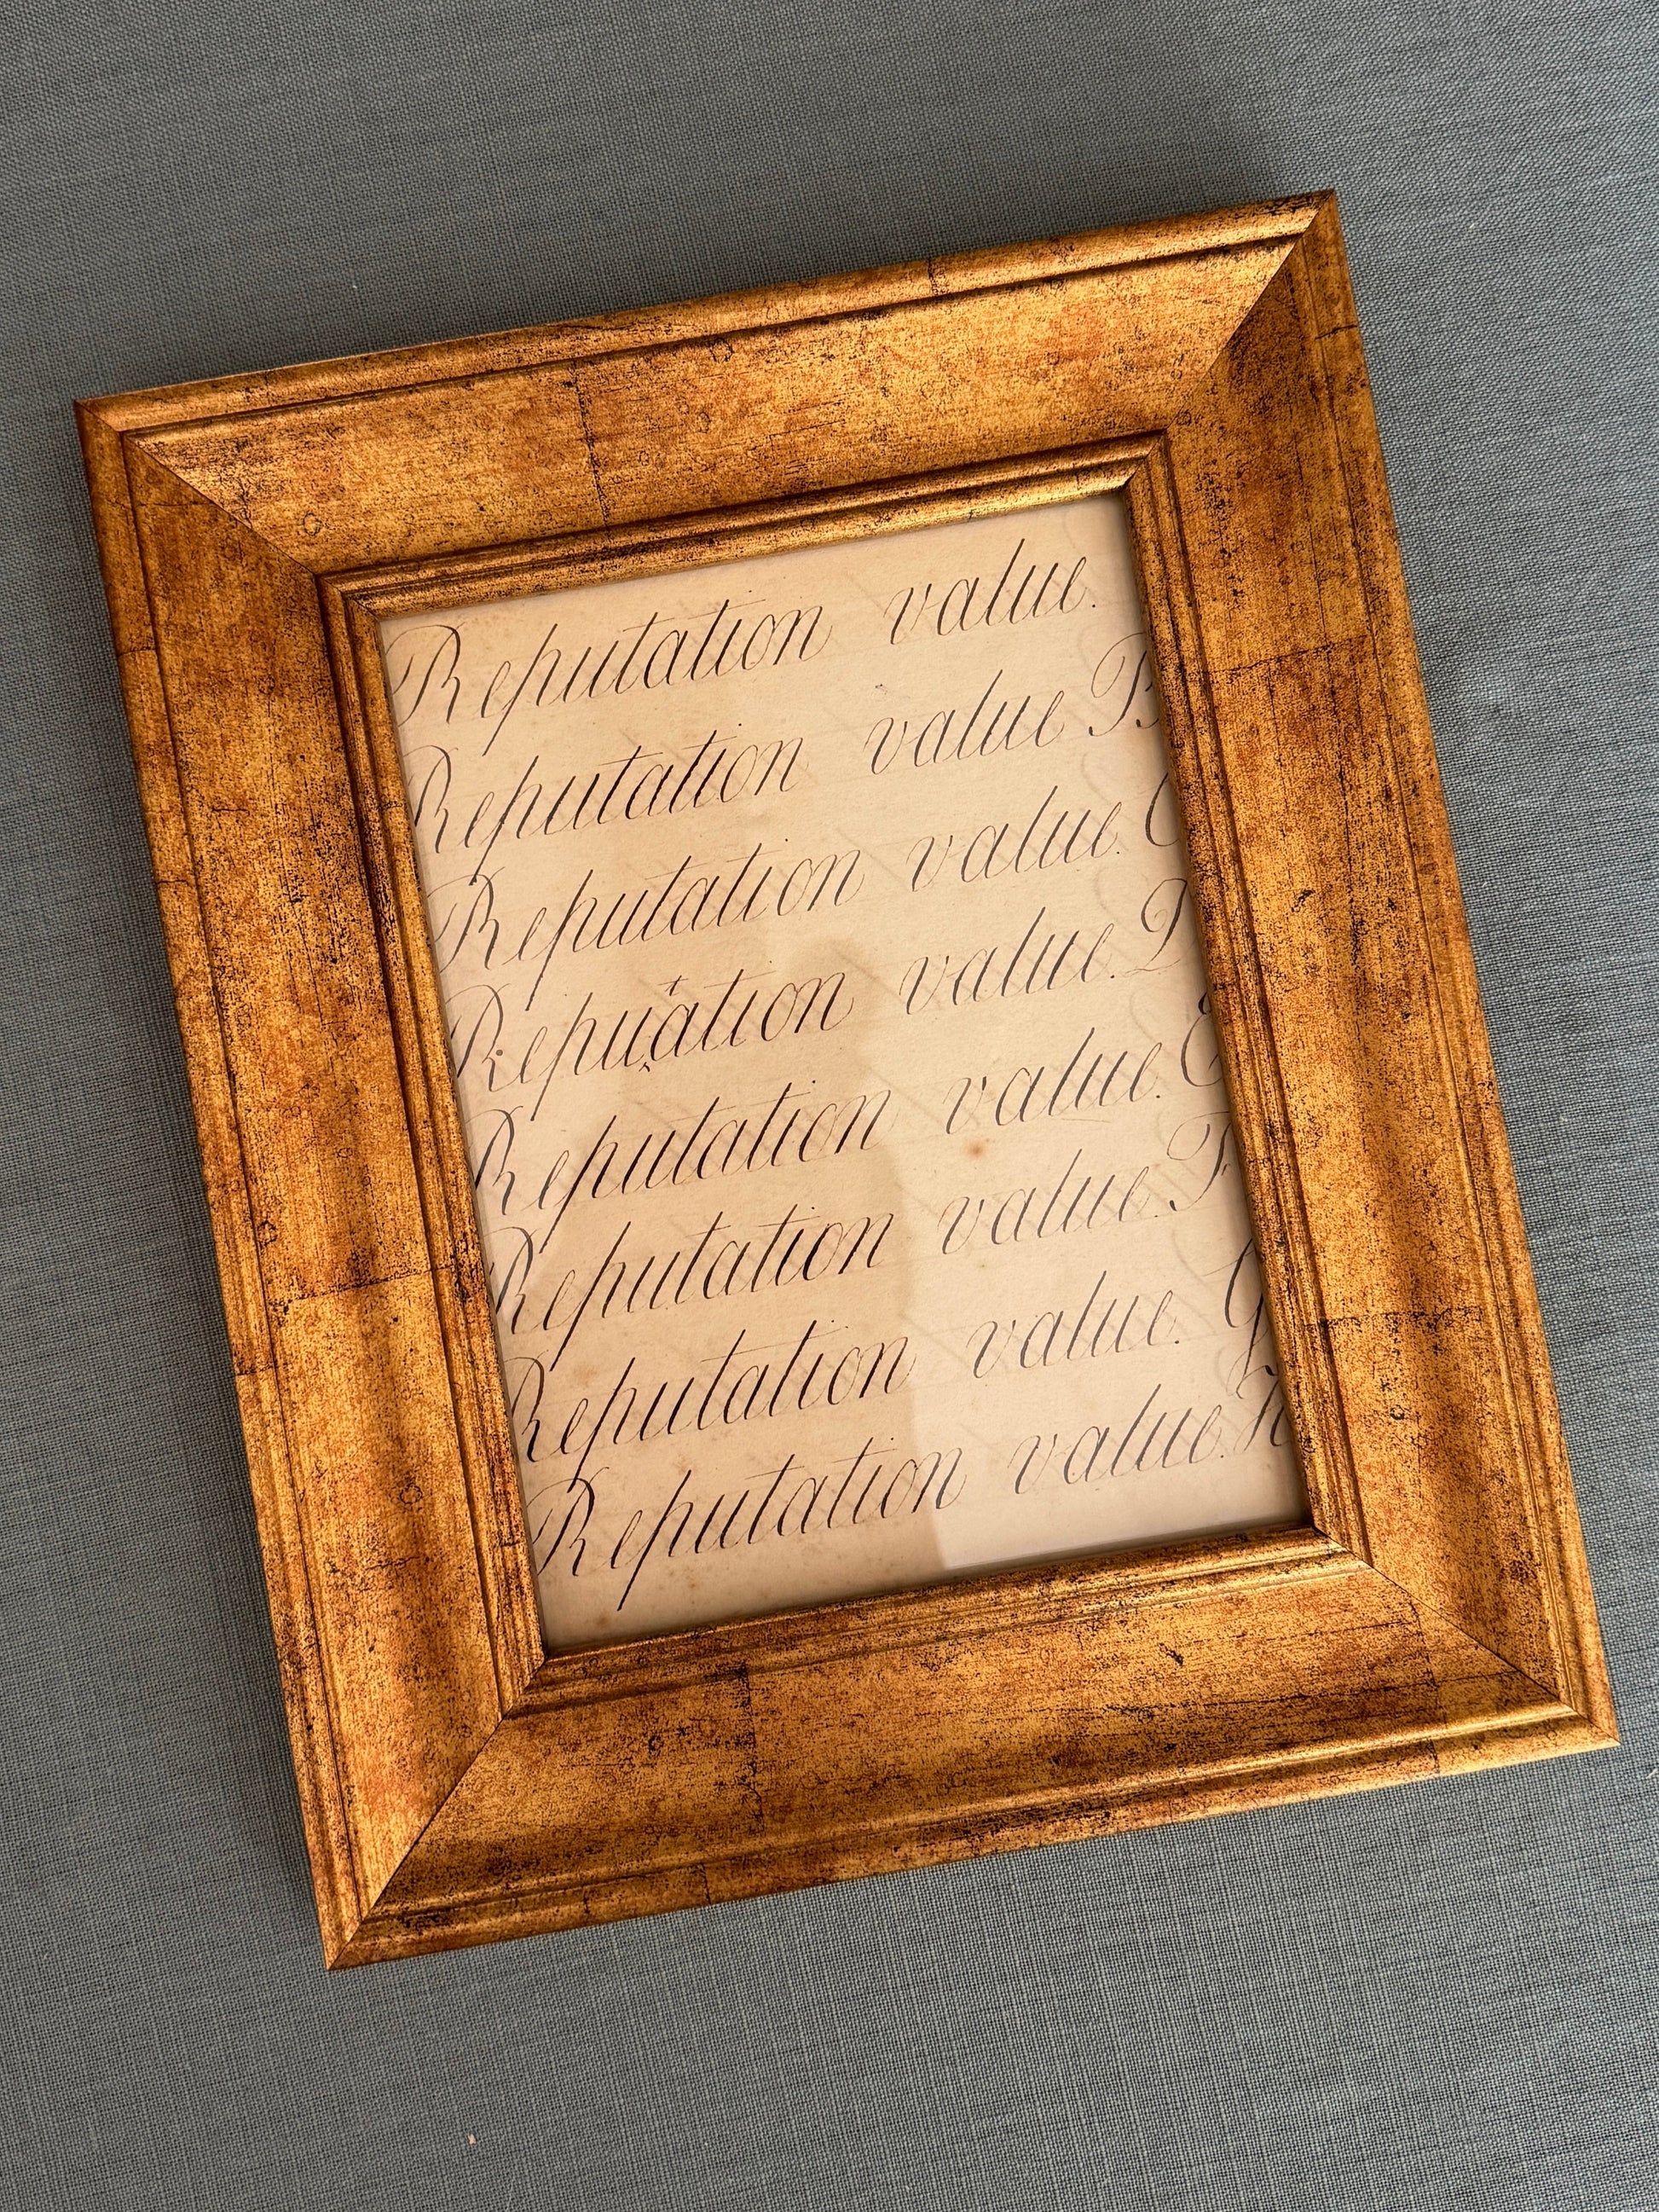 Reputation value.
Reputation value B
Reputation value. C
Reputation value. D
Reputation value. E
Reputation value. F
Reputation value. G
Reputation value. H